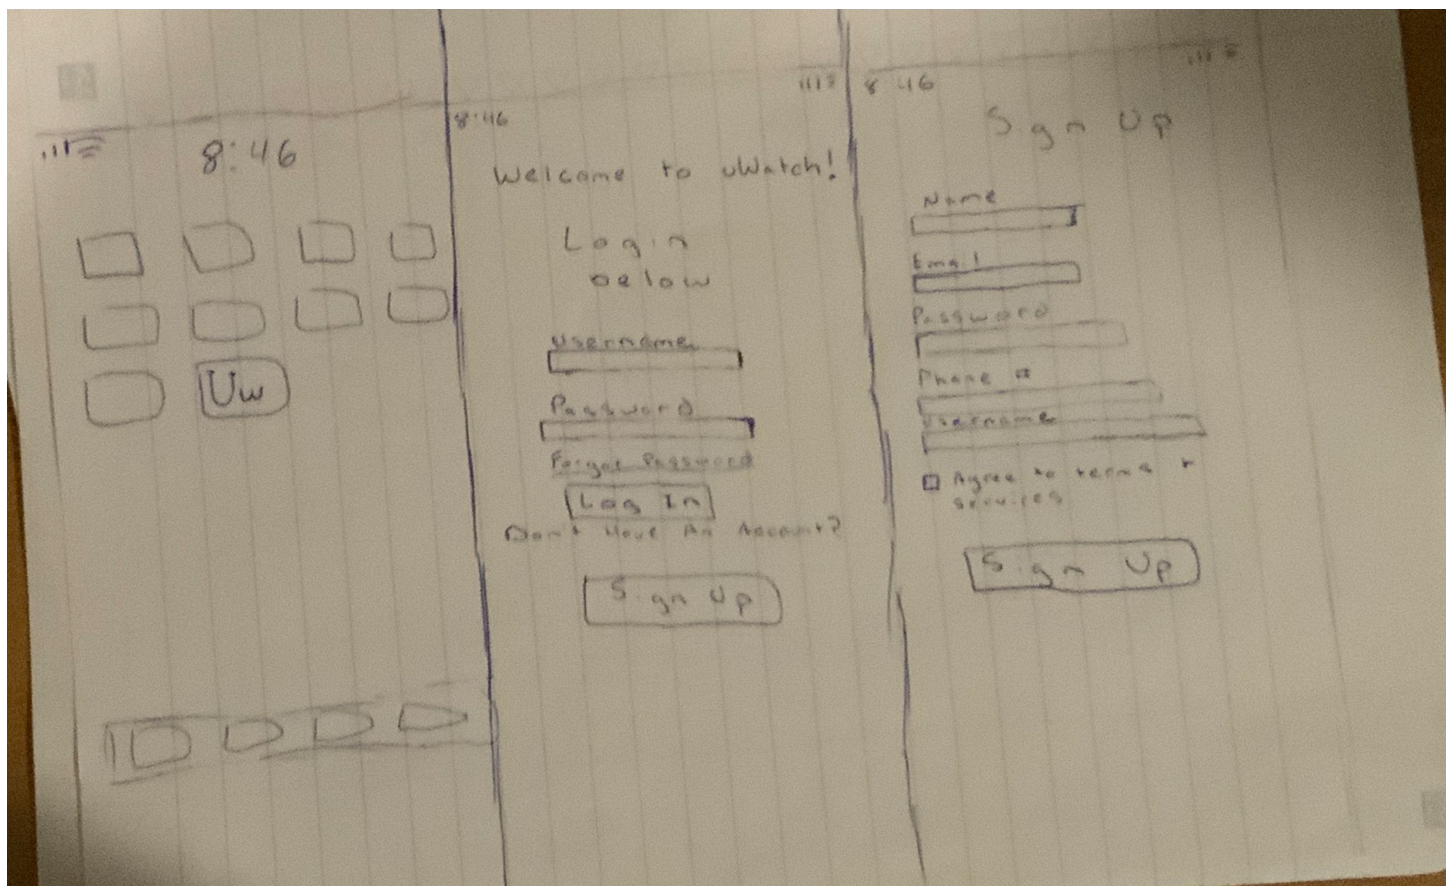 8:46
Uw
8:46
Welcome to uWatch!
Login
below
Username
Password
Forgot Password
Log In
Don't Have An Account?
Sign Up
8:46
Sign Up
Name
Email
Password
Phone #
Username
Agree to terms +
services
Sign Up